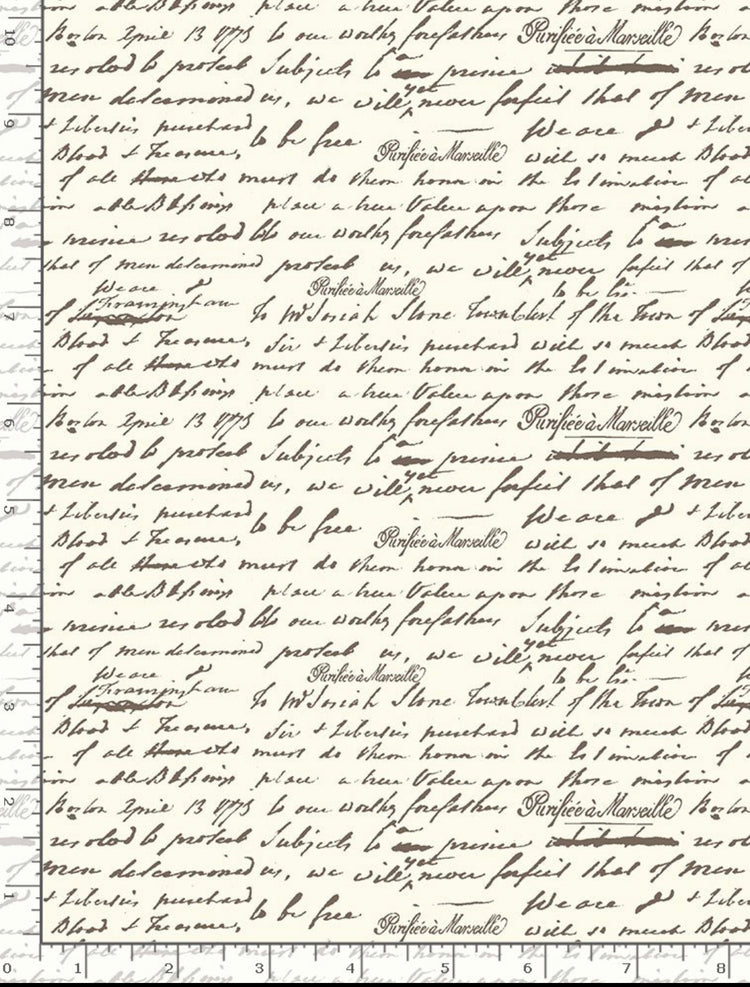 place a true Value upon those mission a
Boston April 13 1775 to our worthy forefathers Purifiée à Marseille Boston
resolvd to protect Subjects to a prince resol
men determined us, we will yet never forfeit that of men
& Liberties purchasd to be free We are & Liber
Blood & Treasure, Purifiée à Marseille with so much Blood
of all who must do them honor in the Estimation of al
able Blessings place a true Value upon those mission a
prince resolvd to our worthy forefathers Subjects to a
that of men determined protect us, we will yet never forfeit that of
We are Purifiée à Marseille to be
of Framingham To Mr Josiah Stone Town Clerk of the Town of
Blood & Treasure, Sir & Liberties purchasd with so much Blood
of all who must do them honor in the Estimation of
able Blessings place a true Value upon those mission a
Boston April 13 1775 to our worthy forefathers Purifiée à Marseille Boston
resolvd to protect Subjects to a prince resol
men determined us, we will yet never forfeit that of men
& Liberties purchasd to be free We are & Liber
Blood & Treasure, Purifiée à Marseille with so much Blood
of all who must do them honor in the Estimation of al
able Blessings place a true Value upon those mission a
prince resolvd to our worthy forefathers Subjects to a
that of men determined protect us, we will yet never forfeit that of
We are Purifiée à Marseille to be
of Framingham To Mr Josiah Stone Town Clerk of the Town of
Blood & Treasure, Sir & Liberties purchasd with so much Blood
of all who must do them honor in the Estimation of
able Blessings place a true Value upon those mission a
Boston April 13 1775 to our worthy forefathers Purifiée à Marseille Boston
resolvd to protect Subjects to a prince resol
men determined us, we will yet never forfeit that of men
& Liberties purchasd to be free We are & Liber
Blood & Treasure, Purifiée à Marseille with so much Blood
10
9
8
7
6
5
4
3
2
1
0 1 2 3 4 5 6 7 8